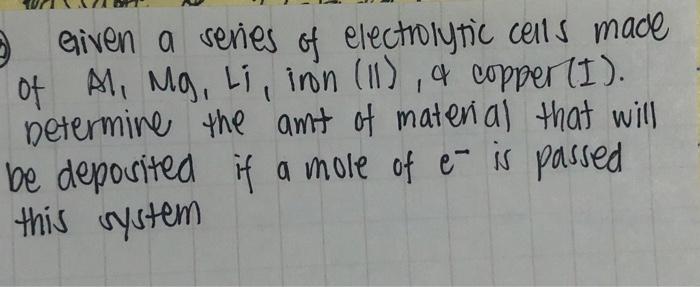 Given a series of electrolytic cells made
of Al, Mg, Li, iron (II), & copper (I).
Determine the amt of material that will
be deposited if a mole of e⁻ is passed
this system